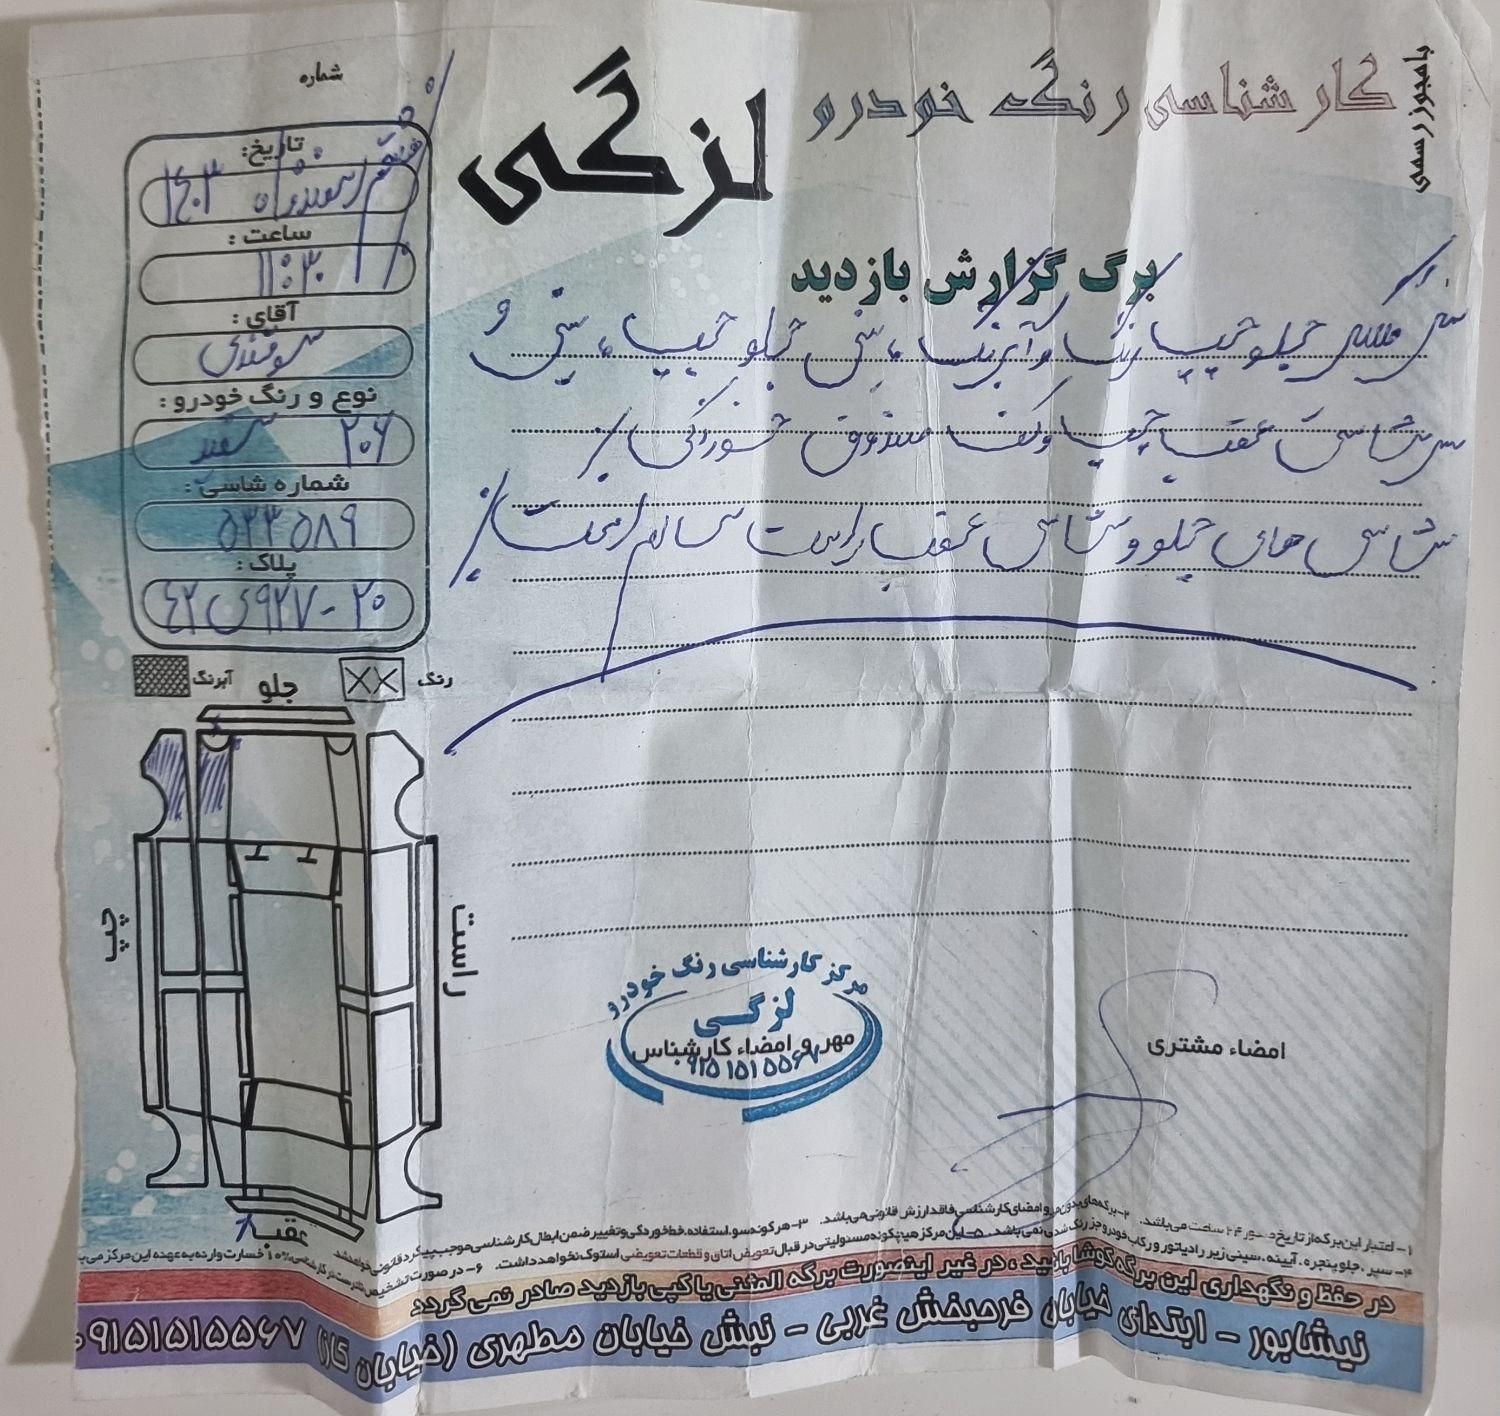 با مجوز رسمی
کارشناسی رنگ خودرو
لزگی
برگ گزارش بازدید
شماره
تاریخ:
ساعت:
۱۱:۳۰
آقای:
نوع و رنگ خودرو:
۲۰۶ سفید
شماره شاسی:
۵۳۳۵۸۹
پلاک:
۴۲ی۹۲۷-۲۰
گلگیر جلو چپ رنگ و آبرنگ، سینی جلو چپ، سینی و
سرشاسی عقب چپ و کف صندوق خوردگی
شاسی های جلو و شاسی عقب راست سالم است
رنگ
آبرنگ
جلو
چپ
راست
عقب
مرکز کارشناسی رنگ خودرو
لزگی
مهر و امضاء کارشناس
امضاء مشتری
۱- اعتبار این برگه از تاریخ صدور ۲۴ ساعت می‌باشد. ۲- برگه‌های بدون مهر و امضای کارشناسی فاقد ارزش قانونی می‌باشد. ۳- هرگونه سوء استفاده خط خوردگی و تغییر ضمن ابطال کارشناسی موجب پیگرد قانونی خواهد شد.
۴- سپر، جلو پنجره، آیینه، سینی زیر رادیاتور و رکاب خودرو جز رنگ شدگی نمی‌باشد. ۵- این مرکز هیچگونه مسئولیتی در قبال تعویض اتاق و قطعات تعویضی استوک نخواهد داشت. ۶- در صورت تشخیص
در حفظ و نگهداری این برگه کوشا باشید، در غیر اینصورت برگه المثنی یا کپی بازدید صادر نمی گردد
نیشابور - ابتدای خیابان فرحبخش غربی - نبش خیابان مطهری (خیابان گاز) ۰۹۱۵۱۵۱۵۵۶۷